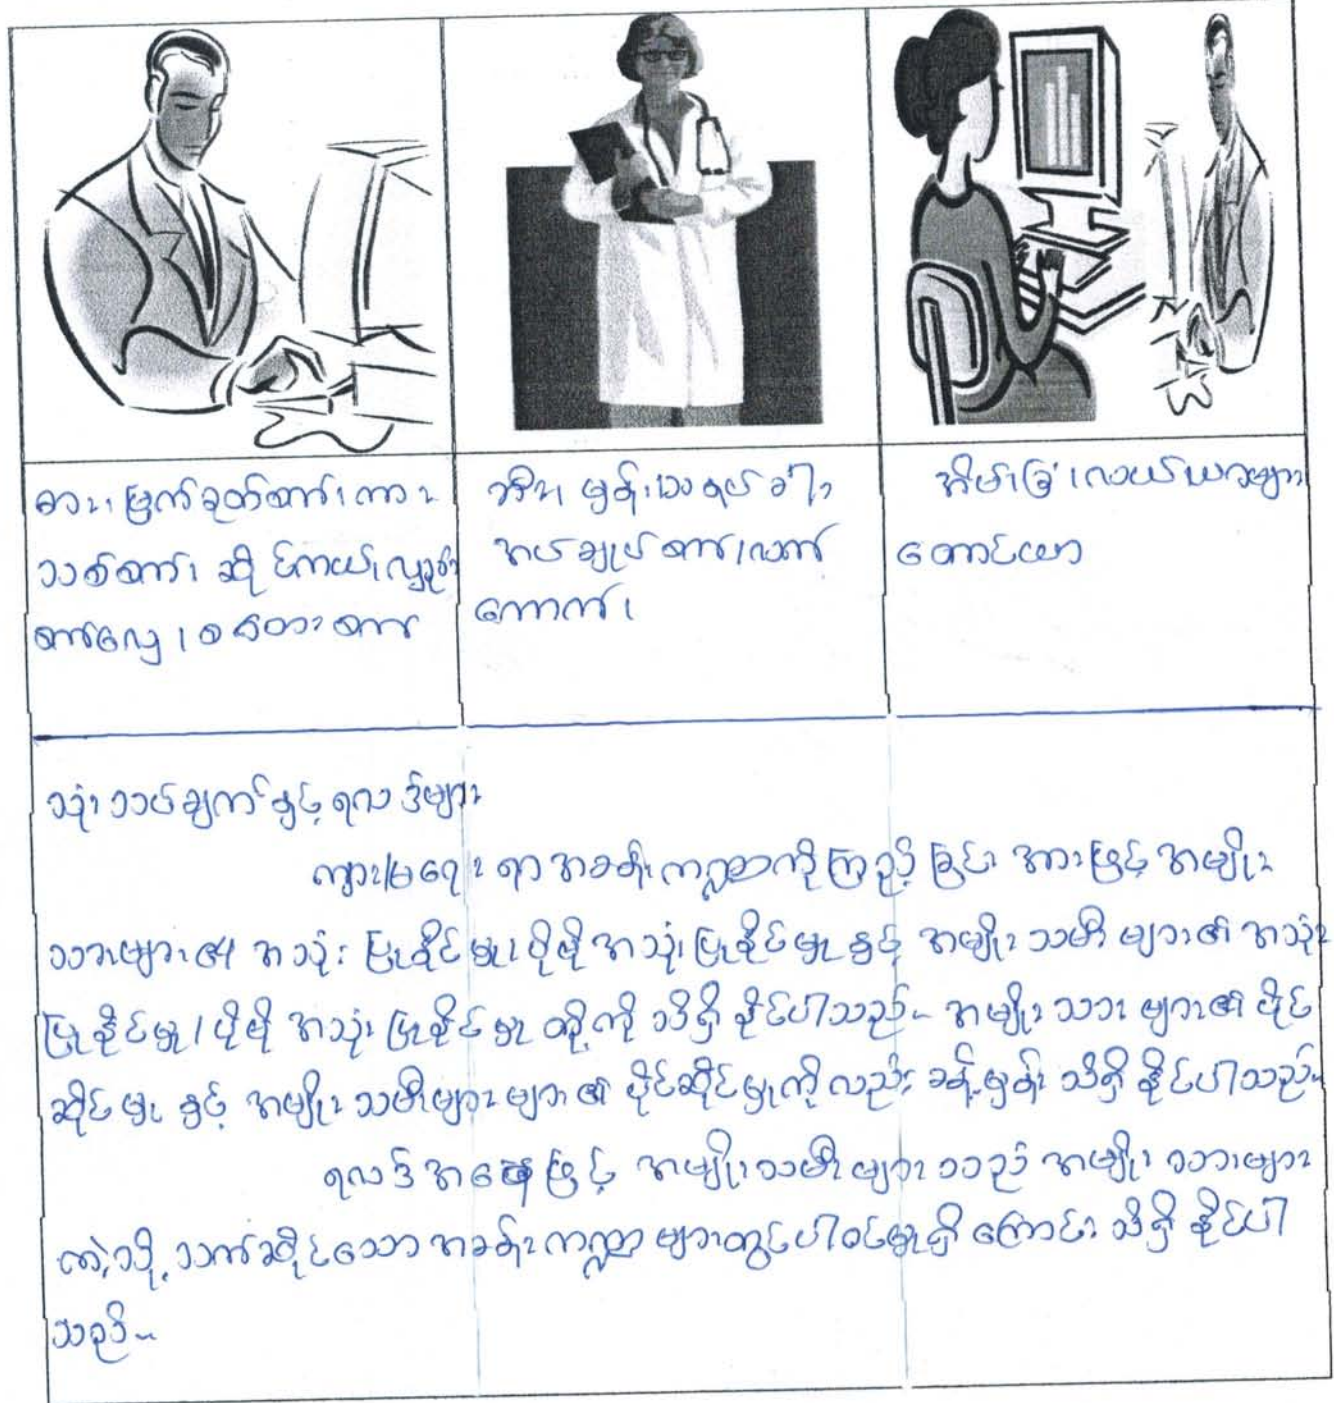 ဓား၊ မြက်ခုတ်စက်၊ ကား
သစ်စက်၊ ဆိုင်ကယ်၊ လျှပ်စစ်
စက်လှေ၊ စတီးစက်
အိုး၊ မှန်၊ သနပ်ခါး
အပ်ချုပ်စက်၊ လက်
ကောက်၊
အိမ်၊ ခြံ၊ လယ်ယာများ
တောင်ယာ
သုံးသပ်ချက်နှင့် ရလဒ်များ
ကျား/မရေးရာ အခန်းကဏ္ဍကိုကြည့်ခြင်း အားဖြင့် အမျိုး
သားများ၏ အသုံးပြုနိုင်မှု၊ ပိုမိုအသုံးပြုနိုင်မှု နှင့် အမျိုးသမီးများ၏ အသုံး
ပြုနိုင်မှု/ ပိုမို အသုံးပြုနိုင်မှု တို့ကို သိရှိနိုင်ပါသည်။ အမျိုးသားများ၏ ပိုင်
ဆိုင်မှု နှင့် အမျိုးသမီးများများ၏ ပိုင်ဆိုင်မှုကိုလည်း ခန့်မှန်း သိရှိနိုင်ပါသည်။
ရလဒ်အနေဖြင့် အမျိုးသမီးများသည် အမျိုးသားများ
ကဲ့သို့ သက်ဆိုင်သော အခန်းကဏ္ဍများတွင်ပါဝင်မှုရှိကြောင်း သိရှိနိုင်ပါ
သည်။